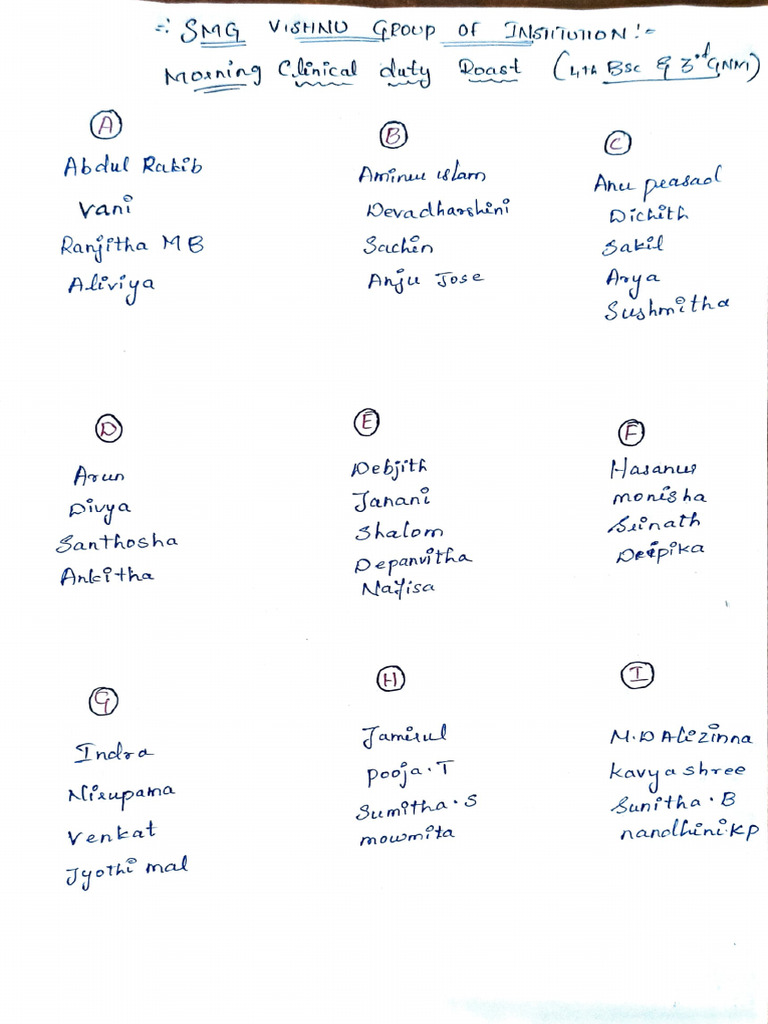 -:- SMG VISHNU GROUP OF INSTITUTION :-
Morning Clinical duty Roast (4th BSC & 3rd GNM)
A
Abdul Rakib
Vani
Ranjitha M B
Aliviya
B
Aminu islam
Devadharshini
Sachin
Anju Jose
C
Anu prasad
Dichith
Sakil
Arya
Sushmitha
D
Arun
Divya
Santhosha
Ankitha
E
Debjith
Janani
Shalom
Depanvitha
Nafisa
F
Hasanur
monisha
Srinath
Deepika
G
Indra
Nirupama
Venkat
Jyothi mal
H
Jamirul
Pooja.T
Sumitha.S
mowmita
I
M.D Alizinna
kavya shree
Sunitha.B
nandhini.KP